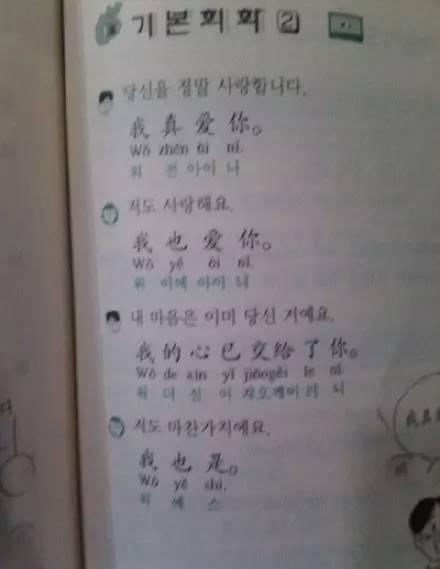 기본회화 2
당신을 정말 사랑합니다.
我 真 爱 你。
Wǒ zhēn ài nǐ.
워 전 아이 니
저도 사랑해요.
我 也 爱 你。
Wǒ yě ài nǐ.
워 이에 아이 니
내 마음은 이미 당신 거예요.
我 的 心 已 交给 了 你。
Wǒ de xīn yǐ jiāogěi le nǐ.
워 더 신 이 쟈오께이 러 니
저도 마찬가지예요.
我 也 是。
Wǒ yě shì.
워 예 스